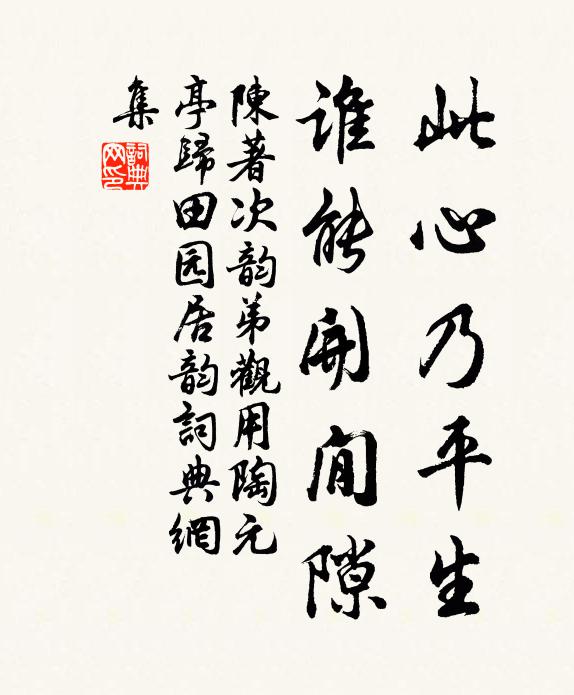 此心乃平生
誰能開間隙
陳著次韵弟觀用陶元
亭歸田园居韵詞典網
集
詞典网印